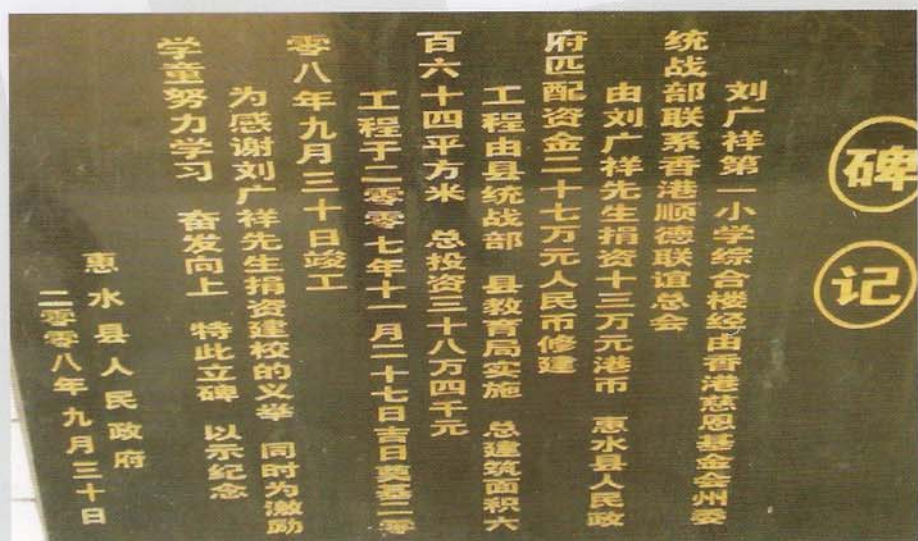 碑记
刘广祥第一小学综合楼经由香港慈恩基金会州委
统战部联系香港顺德联谊总会
由刘广祥先生捐资十三万元港币 惠水县人民政
府匹配资金二十七万元人民币修建
工程由县统战部 县教育局实施 总建筑面积六
百六十四平方米 总投资三十八万四千元
工程于二零零七年十一月二十七日吉日奠基二零
零八年九月三十日竣工
为感谢刘广祥先生捐资建校的义举 同时为激励
学童努力学习 奋发向上 特此立碑 以示纪念
惠水县人民政府
二零零八年九月三十日